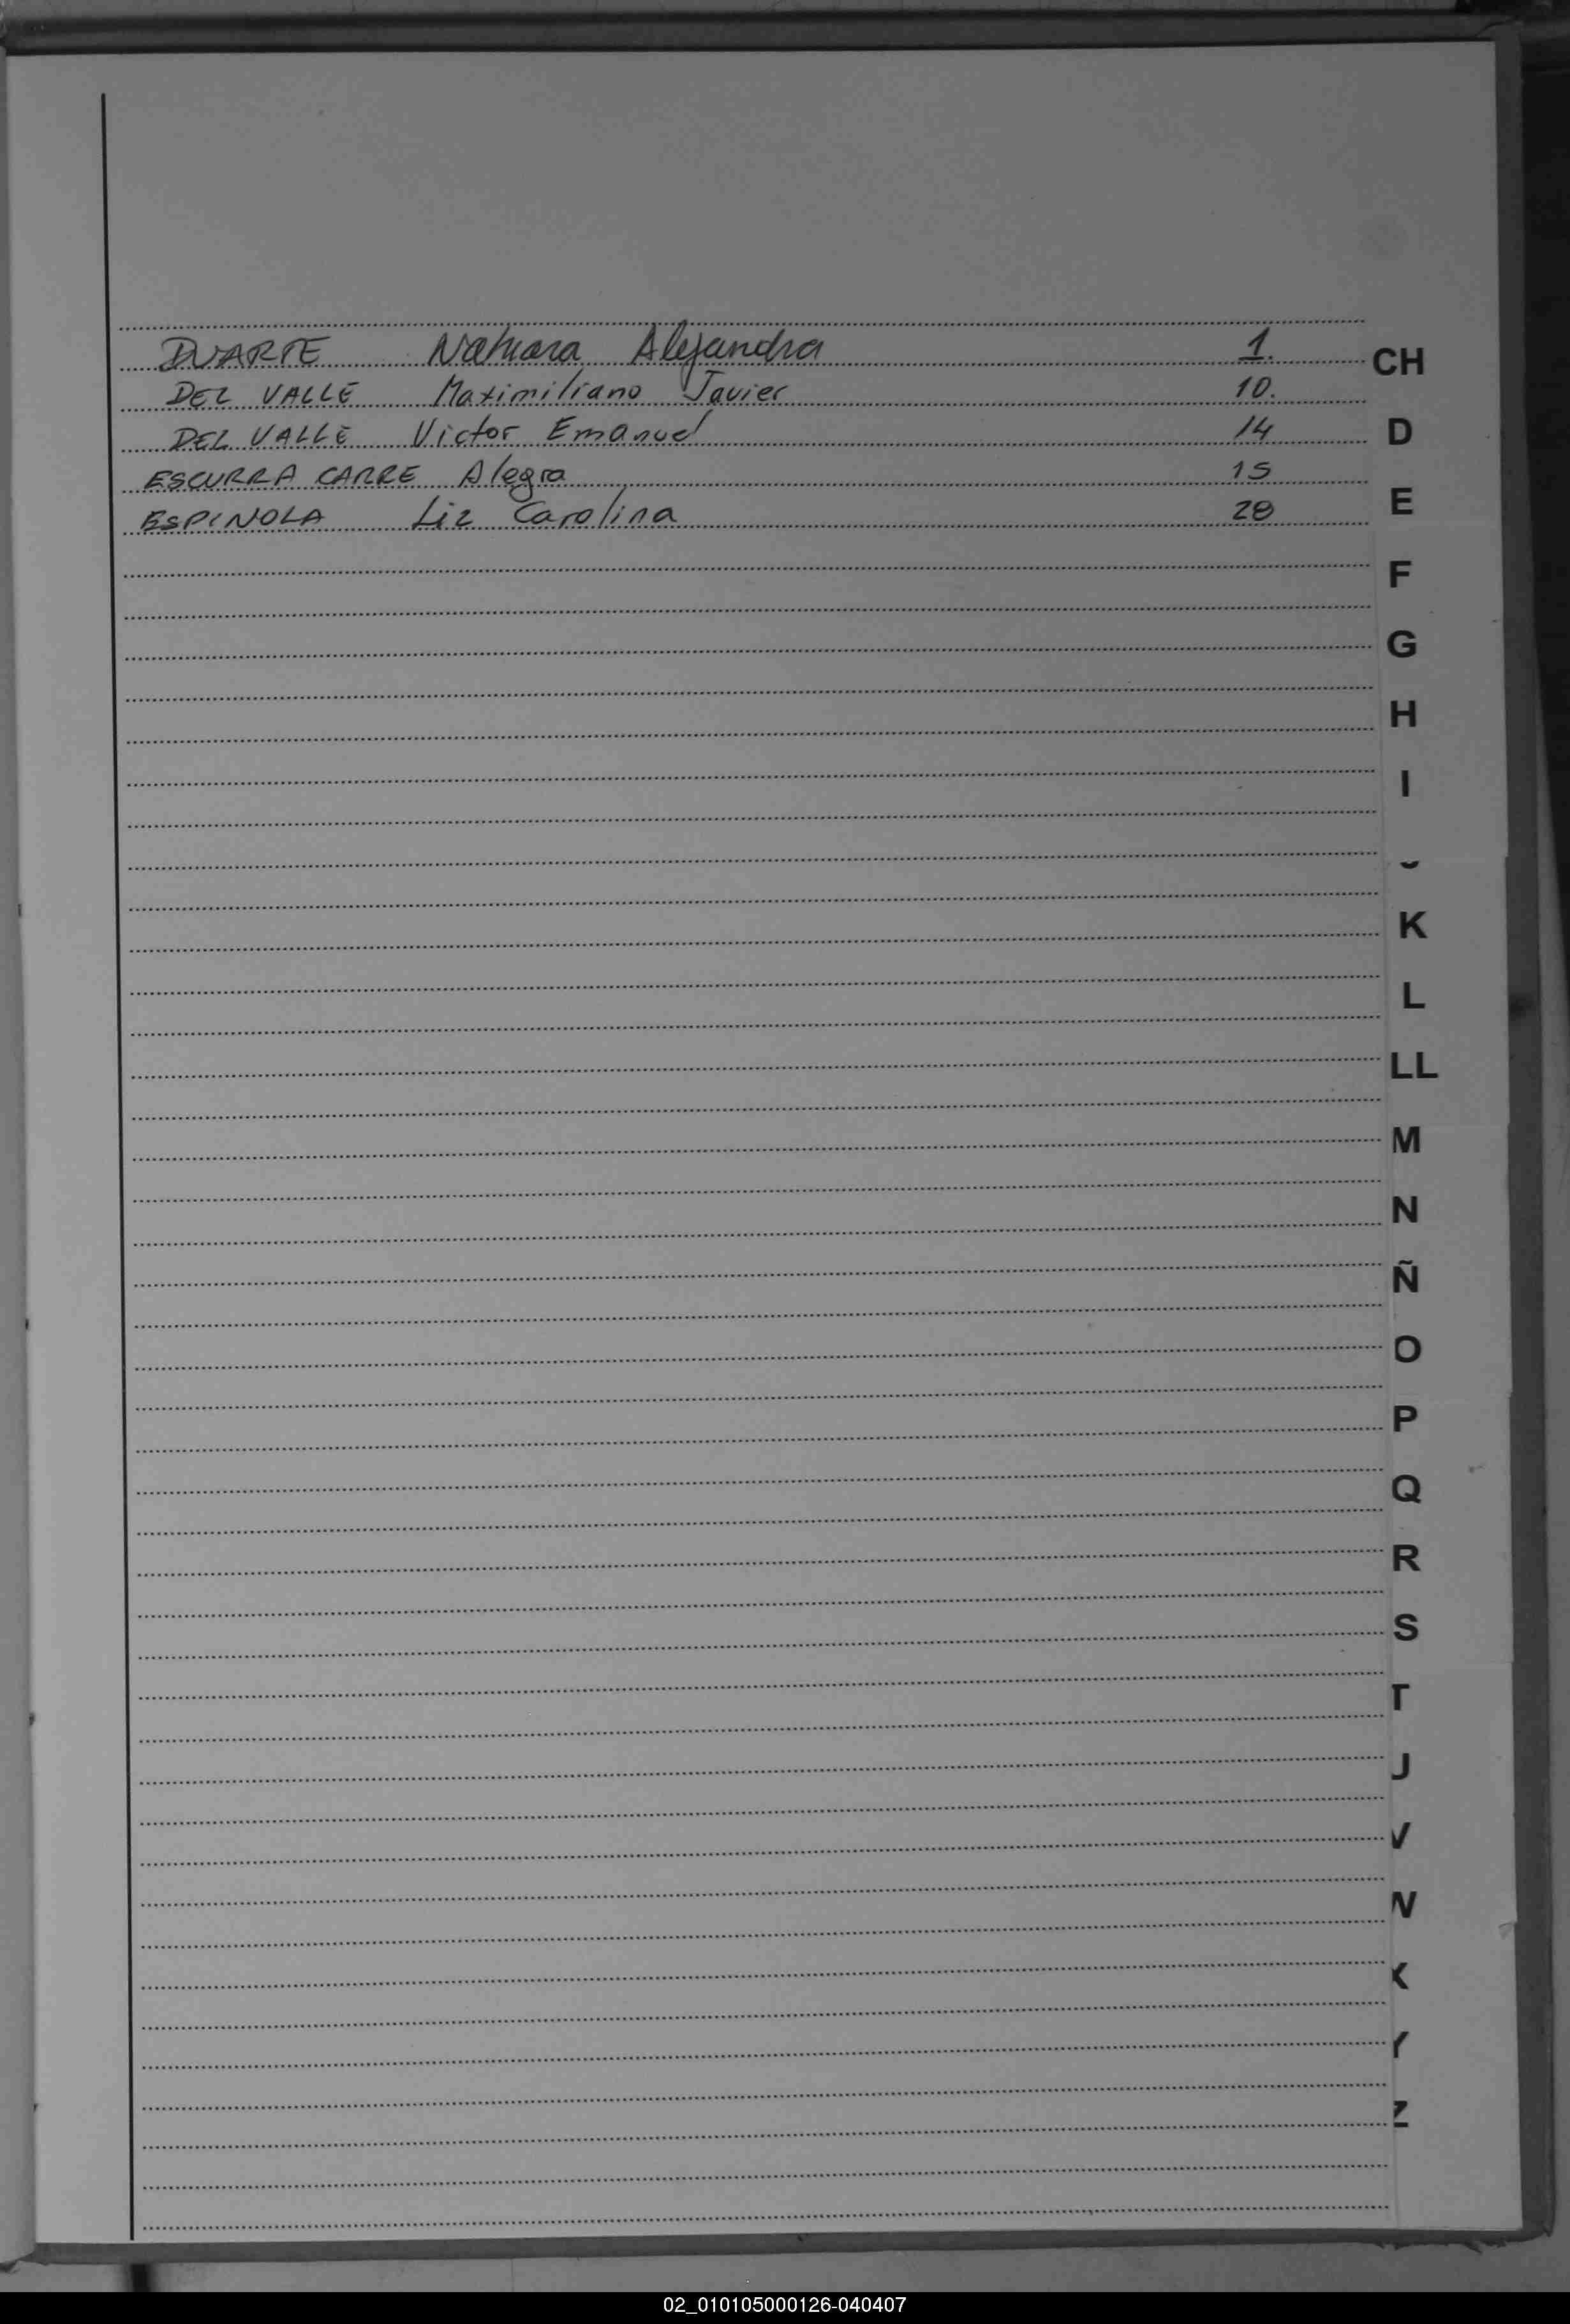 DUARTE Nahiara Alejandra 1.
DEL VALLE Maximiliano Javier 10.
DEL VALLE Victor Emanuel 14
ESCURRA CARRE Alegra 15
ESPINOLA Liz Carolina 28
CH
D
E
F
G
H
I
K
L
LL
M
N
Ñ
O
P
Q
R
S
T
U
V
W
X
Y
Z
02_010105000126-040407